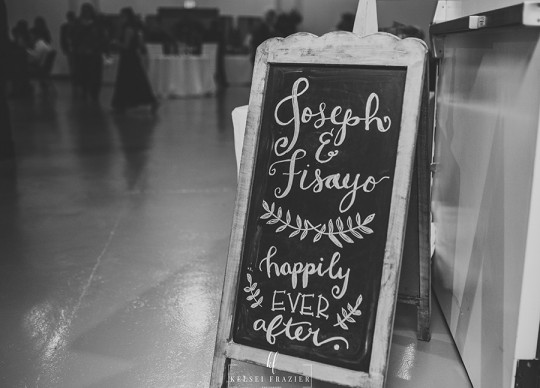 Joseph
&
Fisayo
happily
EVER
after.
KELSEI FRAZIER